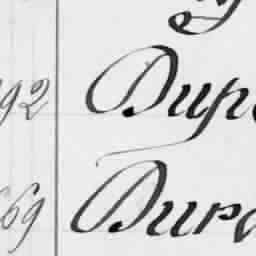 92 Dup
69 Dur